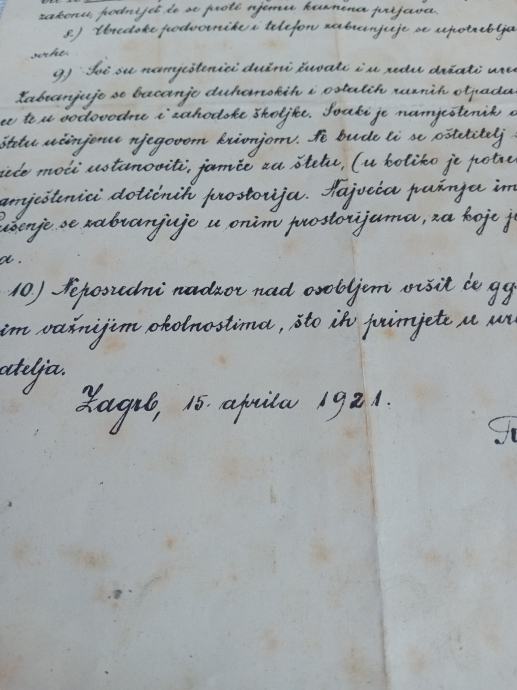 zakonu, podnijet će se proti njemu kaznena prijava.
8.) Uredske podvornike i telefon zabranjuje se upotreblja
svrhe.
9.) Svi su namještenici dužni čuvati i u redu držati ure
Zabranjuje se bacanje duhanskih i ostalih raznih otpada
ce te u vodovodne i zahodske školjke. Svaki je namještenik o
štetu učinjenu njegovom krivnjom. Ne bude li se oštetitelj
moći ustanoviti, jamče za štetu, (u koliko je potre
amještenici dotičnih prostorija. Najveća pažnja im
ušenje se zabranjuje u onim prostorijama, za koje je
a.
10.) Neposredni nadzor nad osobljem vršit će gg.
im važnijim okolnostima, što ih primjete u ure
atelja.
Zagrb, 15. aprila 1921.